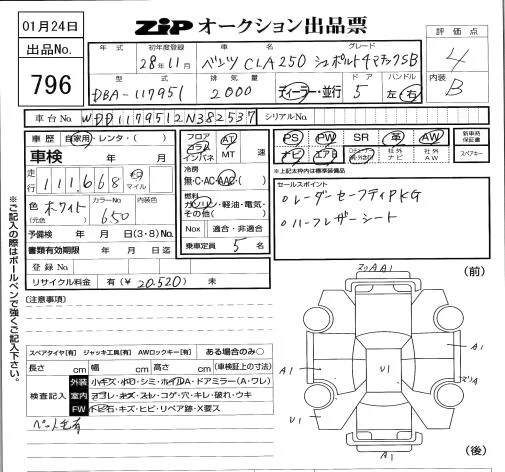 01月24日
ZIP オークション出品票
出品No.
796
評価点
4
内装
B
年式 初年度登録 車名 グレード
28年11月 ベンツ CLA250 シュポルト4マチックSB
型式 排気量 ドア ハンドル
DBA-117951 2000 ディーラー・並行 5 左・右
車台No. WDD1179512N382537 シリアルNo.
車歴 自家用・レンタ・( )
車検 年 月
走行 111,668 キロ マイル
色(元色) ホワイト カラーNo. 650 内装色
予備検 年 月 日(3・8)No.
書類有効期限 年 月 日迄
登録No.
リサイクル料金 有(¥ 20.520) 未
フロア コラム インパネ AT MT 速
冷房 無・C・AC・AAC・( )
燃料 ガソリン・軽油・電気・その他( )
Nox 適合・非適合
乗車定員 5 名
PS PW SR 革 AW
ナビ エアB 社外ナビ 社外AW
新車時保証書
スペアキー
*上記太枠内は標準装備品
セールスポイント
○レーダーセーフティPKG
○ハーフレザーシート
※ご記入の際はボールペンで強くご記入下さい。
(注意事項)
スペアタイヤ[有] ジャッキ工具[有] AWロックキー[有] ある場合のみ○
長さ cm 幅 cm 高さ cm (車検証上の寸法)
検査記入
外装 小キズ・小凹・シミ・ホイルA・ドアミラー(A・ワレ)
室内 ヨゴレ・キズ・スレ・コゲ・穴・キレ・破れ・ウキ
FW トビ石・キズ・ヒビ・リペア跡・X要ス
ペット毛有
(前)
A1
A1
U1
A1
マソA
U1
A1
(後)